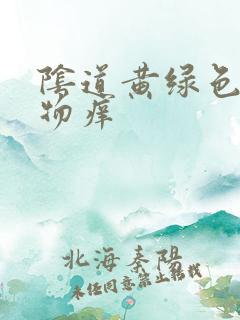 陰道黄绿色
物 痒
北海秦阳
未经同意禁止转载